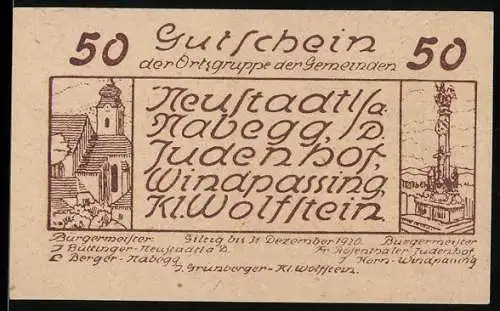 50 Gutschein 50
der Ortsgruppe der Gemeinden
Neustadtl a/D.
Nabegg,
Judenhof,
Windpassing,
Kl. Wolfstein.
Bürgermeister: Giltig bis 31 Dezember 1920. Burgermeister
J Büttinger-Neustadtl a D. Fr Rosenthaler Judenhof
L Berger-Nabegg J Horn-Windpassing
J. Grunberger-Kl. Wolfstein.